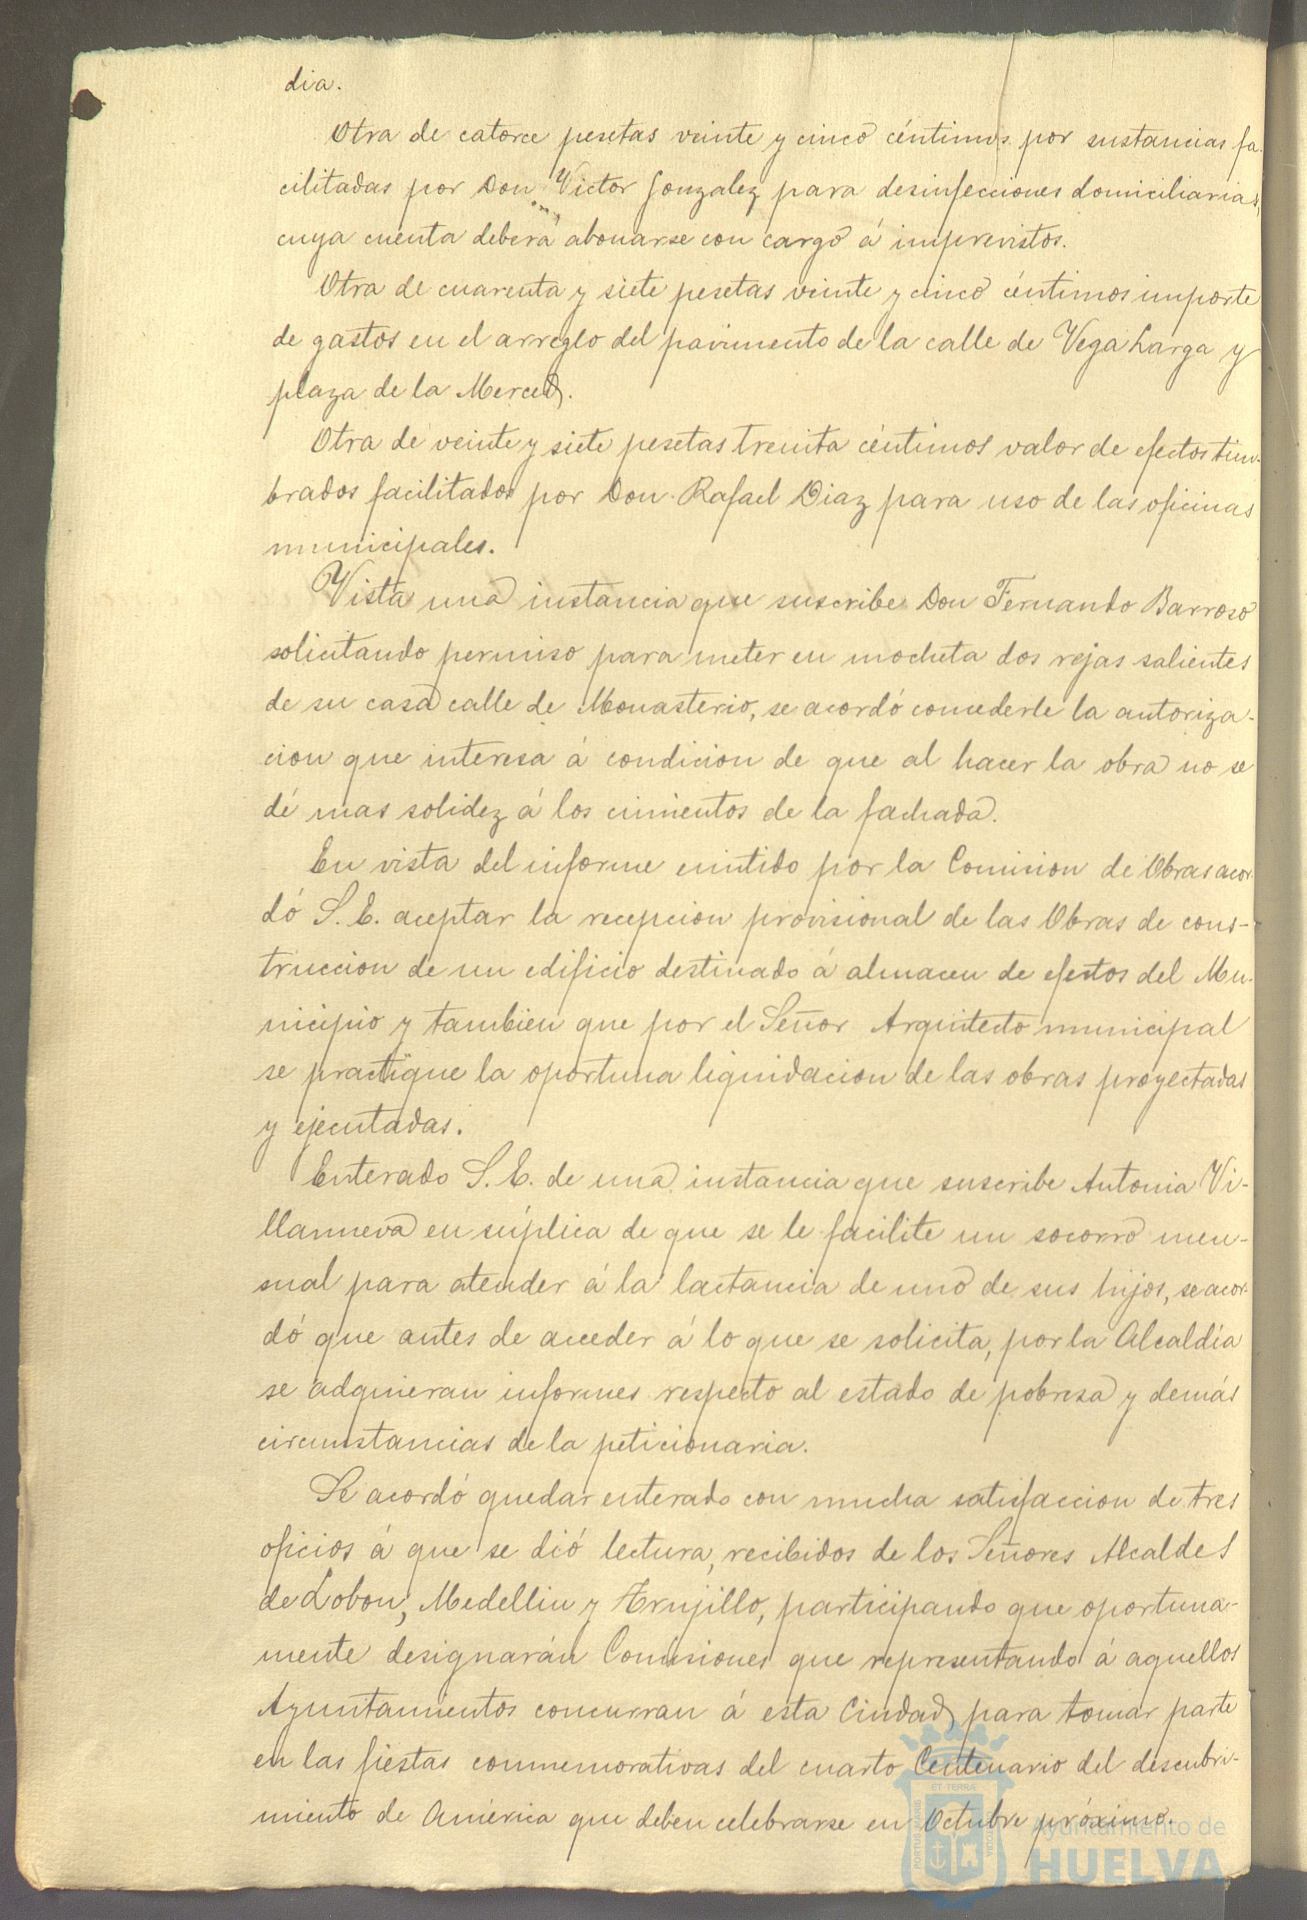 dia.
Otra de catorce pesetas veinte y cinco céntimos por sustancias fa-
cilitadas por Don Victor Gonzalez para desinfecciones domiciliarias,
cuya cuenta deberá abonarse con cargo á imprevistos.
Otra de cuarenta y siete pesetas veinte y cinco céntimos importe
de gastos en el arreglo del pavimento de la calle de Vega Larga y
plaza de la Merced.
Otra de veinte y siete pesetas treinta céntimos valor de efectos tim-
brados facilitados por Don Rafael Diaz para uso de las oficinas
municipales.
Vista una instancia que suscribe Don Fernando Barroso
solicitando permiso para meter en mocheta dos rejas salientes
de su casa calle de Monasterio, se acordó concederle la autoriza-
cion que interesa á condicion de que al hacer la obra no se
dé mas solidez á los cimientos de la fachada.
En vista del informe emitido por la Comision de Obras acor-
dó S. E. aceptar la recepcion provisional de las Obras de cons-
truccion de un edificio destinado á almacen de efectos del Mu-
nicipio y tambien que por el Señor Arquitecto municipal
se practique la oportuna liquidacion de las obras proyectadas
y ejecutadas.
Enterado S. E. de una instancia que suscribe Antonia Vi-
llanueva en súplica de que se le facilite un socorro men-
sual para atender á la lactancia de uno de sus hijos, se acor-
dó que antes de acceder á lo que se solicita, por la Alcaldía
se adquieran informes respecto al estado de pobreza y demás
circunstancias de la peticionaria.
Se acordó quedar enterado con mucha satisfaccion de tres
oficios á que se dió lectura, recibidos de los Señores Alcaldes
de Lobon, Medellin y Trujillo, participando que oportuna-
mente designarán Comisiones que representando á aquellos
Ayuntamientos concurran á esta Ciudad para tomar parte
en las fiestas conmemorativas del cuarto Centenario del descubri-
miento de América que deben celebrarse en Octubre próximo.
ET TERRÆ
PORTUS MARIS
CUSTODIA
Ayuntamiento de
HUELVA